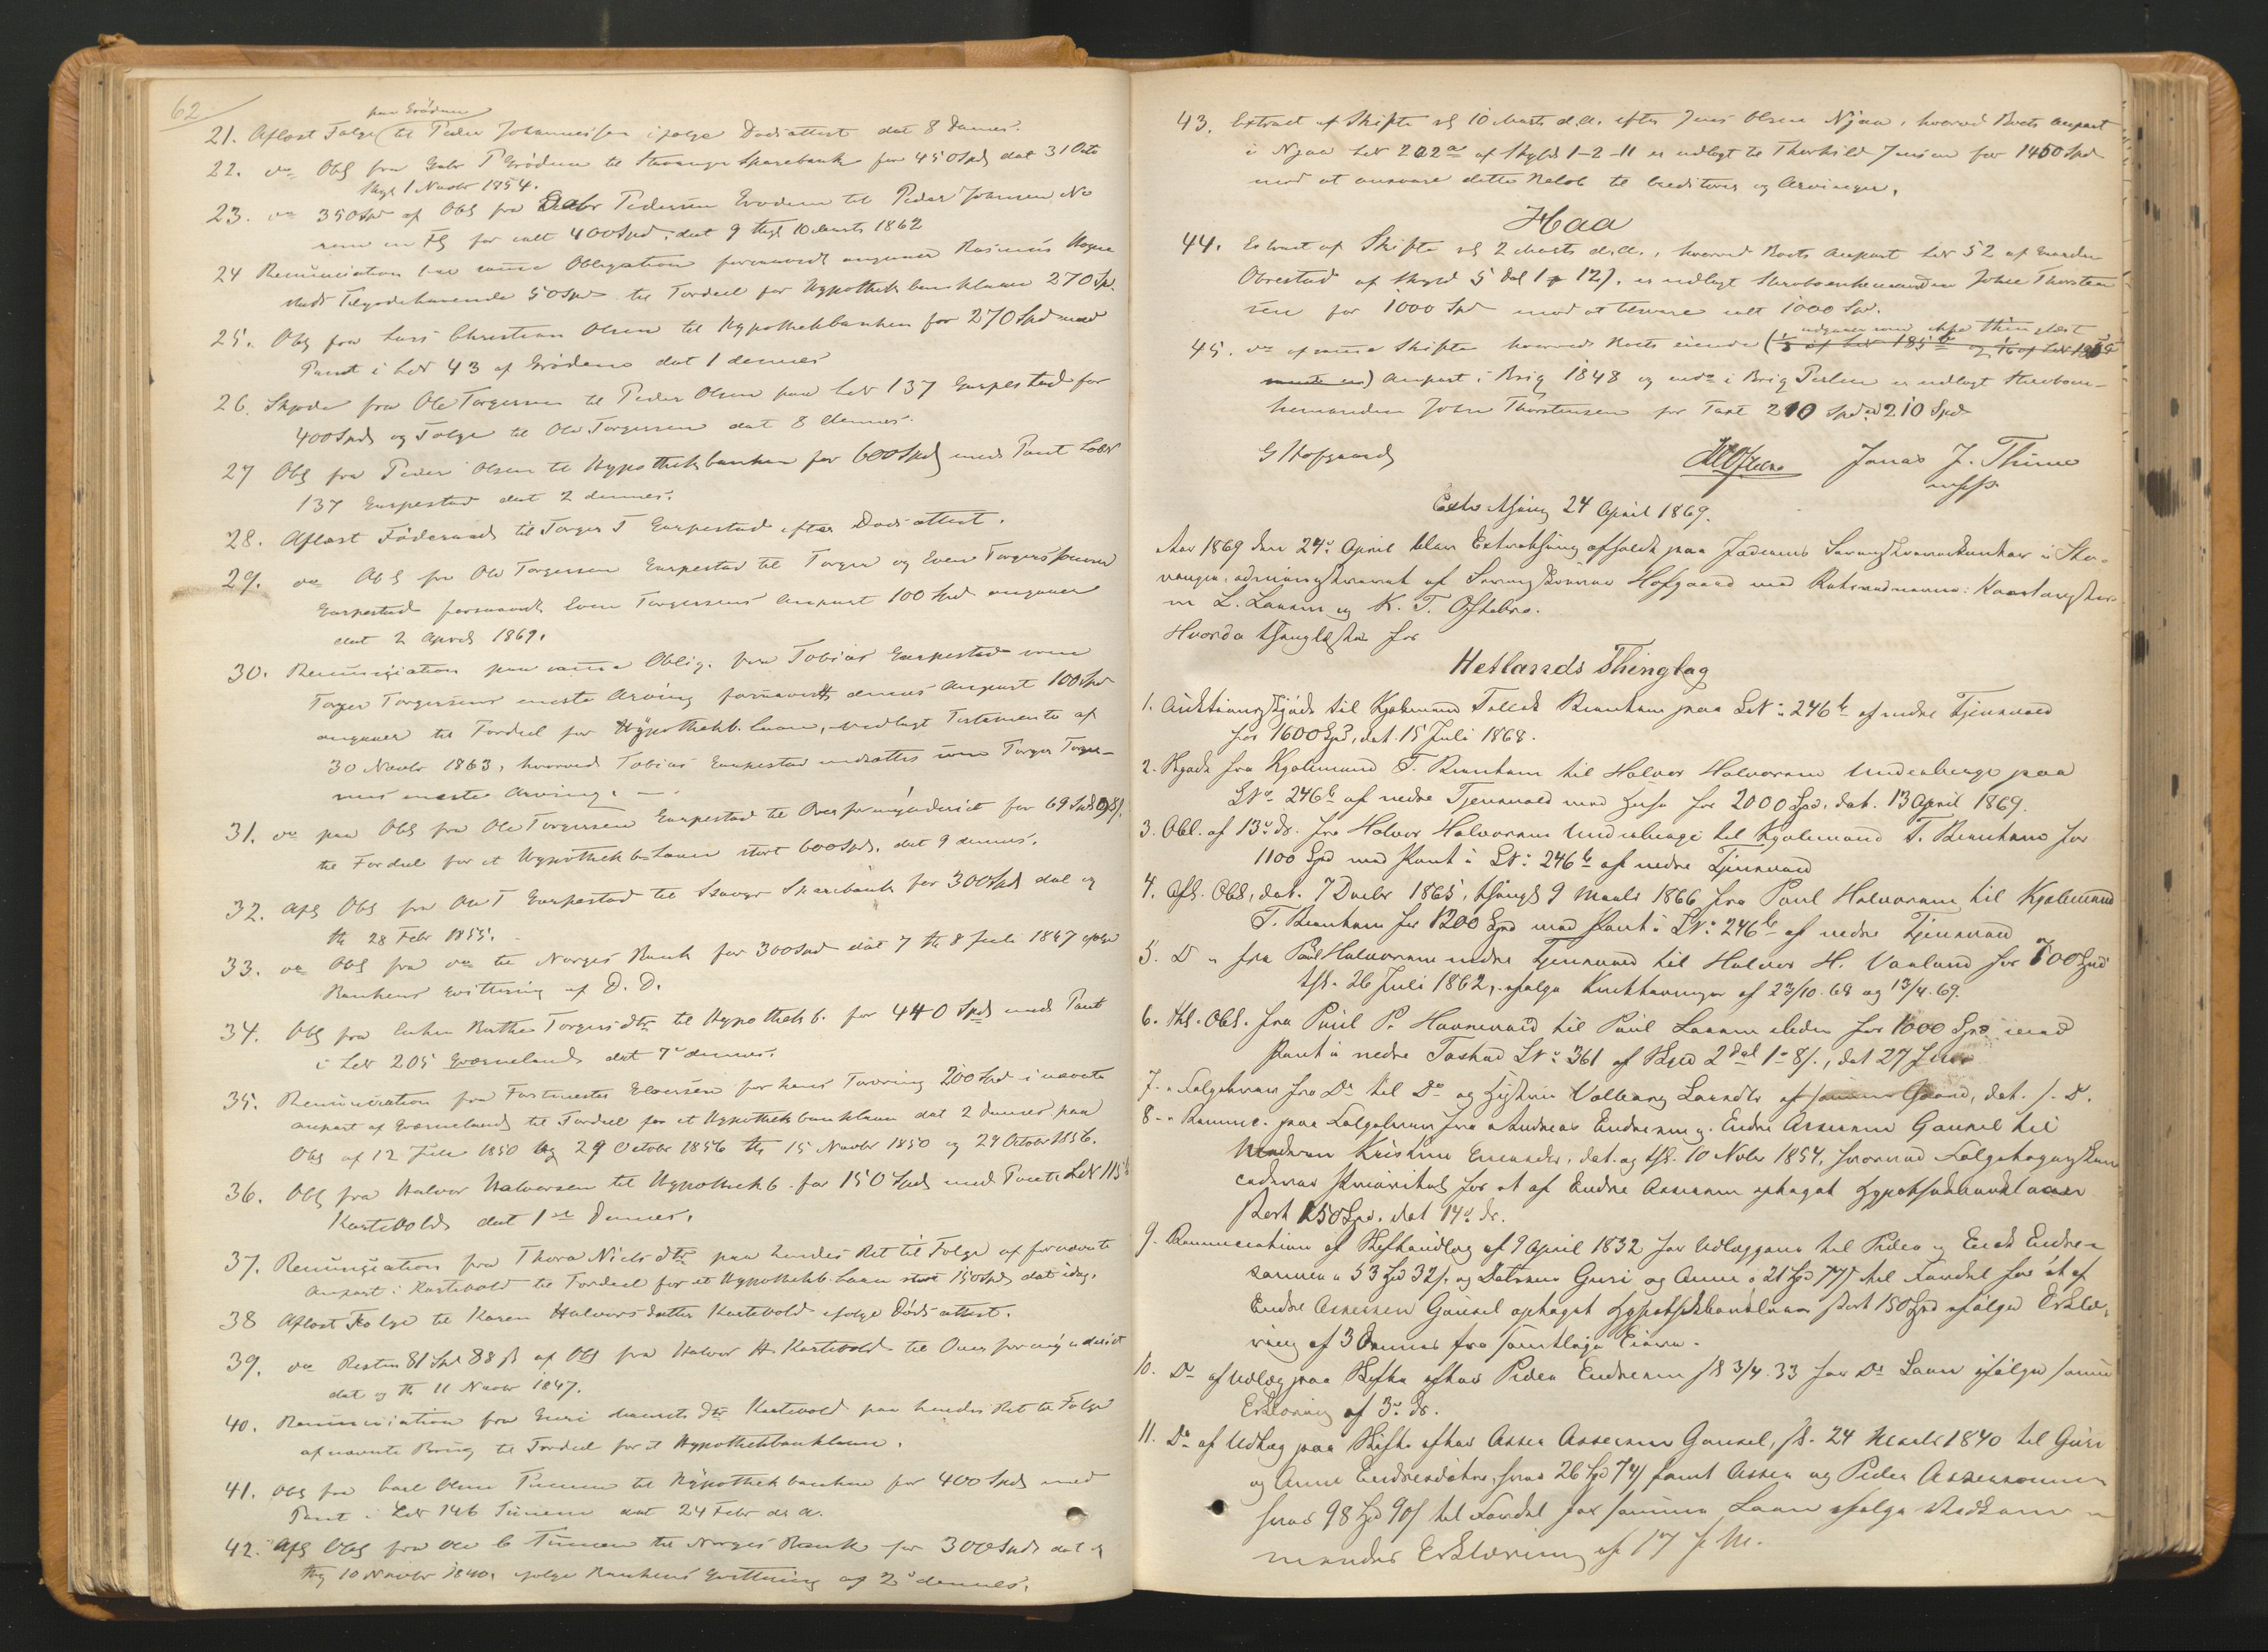 62
paa Grödem
21. Aflöst Folge (til Peder Johannessen ifölge Dödsattest dat 8 dennes.
22. do Obl fra Gabr P Grödem til Stavanger Sparebank for 450 Spd dat 31 Octr
thgl 1 Novbr 1854.
23. do 350 Spd af Obl fra Gabr Pedersen Grödem til Peder Johnsen
for ialt 400 Spd, dat 9 thgl 10 Marts 1862
24 Renunciation paa samme Obligation forsaavidt angaaer Rasmus
Tilgodehavende 50 Spd til Fordeel for Hypothekbanklaan 270 Sp.
25. Obl fra Lars Christian Olsen til Hypothekbanken for 270 Spd mod
Pant i LNr 43 af Grödem dat 1 dennes
26. Skjöde fra Ole Torgersen til Peder Olsen paa LNr 137 Gurpestad for
400 Spd og Folge til Ole Torgersen dat 8 dennes.
27 Obl fra Peder Olsen til Hypothekbanken for 600 Spd mod Pant i LNr
137 Gurpestad dat 2 dennes.
28. Aflöst Föderaad til Torger T Gurpestad efter Dödsattest.
29. do Obl fra Ole Torgersen Gurpestad til Torger og Even Torgerssönner
Gurpestad forsaavidt Even Torgersens Anpart 100 Spd angaaer
dat 2 April 1869.
30. Renunciation paa samme Oblig. fra Tobias Gurpestad som
Torger Torgersens eneste Arving forsaavidt dennes Anpart 100 Spd
angaaer til Fordeel for Hypothekb. laan, vedlagt Testamente af
30 Novbr 1863, hvorved Tobias Gurpestad indsættes som Torger Torger-
sens eneste Arving. —
31. do paa Obl fra Ole Torgersen Gurpestad til Overformynderiet for 69 Spd
til Fordeel for et Hypothekb. Laan stort 600 Spd, dat 9 dennes.
32. Afl Obl fra Ole T Gurpestad til Stavgr Sparebank for 300 Spd dat og
th 28 Febr 1855.
33. do Obl fra do til Norges Bank for 300 Spd dat 7 th 8 Juli 1847 ifölge
Bankens Qvittering af D. D.
34. Obl fra Enken Berthe Torgersdtr til Hypothekb. for 440 Spd mod Pant
i LNr 205 Qværneland dat 7de dennes.
35. Renunciation fra for hans Fordring 200 Spd i nævnte
Anpart af Qværneland til Fordeel for et Hypothekbanklaan dat 2 dennes paa
Obl af 12 Juli 1850 og 29 October 1856 th 15 Novbr 1850 og 29 October 1856.
36. Obl fra Halvor Halvorsen til Hypothekb. for 150 Spd mod Pant i LNr 115
Kartevold dat 1ste dennes.
37. Renunciation fra Thora Nielsdtr paa hendes Ret til Folge af fornævnte
Anpart i Kartevold til Fordeel for et Hypothekb. Laan stort 150 Spd dat idag.
38 Aflöst Folge til Karen Halvorsdatter Kartevold ifölge Dödsattest.
39. do Resten 81 Spd 88 s af Obl fra Halvor H. Kartevold til Overformynderiet
dat og th 11 Novbr 1847.
40. Renunciation fra Guri Kartevold paa hendes Ret til Folge
af nævnte Brug til Fordeel for et Hypothekbanklaan.
41. Obl fra Carl Olsen Tunem til Hypothekbanken for 400 Spd mod
Pant i LNr 146 Tunem dat 24 Febr d. a.
42. Afl Obl fra Ole C Tunem til Norges Bank for 300 Spd dat og
thg 10 Novbr 1840, ifölge Bankens Qvittering af 2 dennes.
43. Extract af Skifte sl 10 Marts d.a. efter Jens Olsen Njaa, hvorved Boets Anpart
i Njaa LNr 202a af Skyld 1-2-11 er udlagt til Thorkild Jensen for 1450 Spd
mod at ansvare dette Belöb til Creditorer og Arvinger.
Haa
44. Extract af Skifte sl 2 Marts d.a., hvorved Boets Anpart LNr 52 af Gaarden
Obrestad af Skyld 5 Dal 1 12 s. er udlagt Stervboenkemanden John Thorsten
sen for 1000 Spd mod at besvare ialt 1000 Spd.
udgaaer som ikke thinglæst
45. do af samme Skifte hvorved Boets eiende (1/3 af LNr 185b og 1/6 af LNr
) Anpart i Brig 1848 og endv i Brig Perlen er udlagt Stervboen-
kemanden John Thorstensen for Taxt 210 Spd 210 Spd
G Hofgaard Jonas J. Thime
Extrathing 24 April 1869.
Aar 1869 den 24de April blev Extrathing afholdt paa Jæderens Sorenskriverkontor i Sta-
vanger, administreret af Sorenskriver Hofgaard med Retsvidnerne:
L. Larsen og K. T. Oftebro.
Hvorda thinglæstes for
Hetlands Thinglag
1. Auktionsskjöde til Kjølmund Tollak Brantham paa LNo 246b af nedre Tjensvold
for 1600 Spd, dat. 15 Juli 1868.
2. Skjøde fra Kjølmund T. Brantham til Halvor Halvorsen Underberge paa
LNo 246b af nedre Tjensvold med Huse for 2000 Spd. dat. 13 April 1869.
3. Obl. af 13de ds. fra Halvor Halvorsen Underberge til Kjølmund T. Brantham for
1100 Spd mod Pant i LNo 246b af nedre Tjensvold
4. Afl. Obl., dat. 7 Decbr 1865, thingl 9 Marts 1866 fra Poul Halvorsen til Kjølmund
T. Brantham for 1200 Spd mod Pant i LNo 246b af nedre Tjensvold
5. Do fra Poul Halvorsen nedre Tjensvold til Halvor H. Vaaland for 700 Spd
thl. 26 Juli 1862, ifølge Kvitteringer af 23/10. 68 og 13/4. 69.
6. Obl. fra Poul P. Haunevold til Poul Larsen for 1000 Spd mod
Pant i nedre Tasted LNo 361 af Skyld 2 dal 1-8 s., dat 27
7. Folgebrev fra Do til Do og Hustru Valborg Larsdtr af samme Gaard, dat. s. D.
8. Renunc. paa Folgebrev fra Andreas Endresen og Endre Assersen Gausel til
Kristine, dat. og thl. 10 Novbr 1854, hvorved Folgetagersken
cederer Prioritet for et af Endre Assersen optaget Hypothekbanklaan
stort 150 Spd, dat 14de ds.
9. Renunciation af Skifteudlæg af 9 April 1832 for Udlæggene til Peder og Endre-
sønner a 53 Spd 32 s. og Døttrene Guri og Anne a 21 Spd 77 s til Fordel for et af
Endre Assersen Gausel optaget Hypothekbanklaan stort 150 Spd ifølge Erklæ-
ring af 3 dennes fra samtlige Eiere.
10. Do af Udlæg paa Skifte efter Peder Endresen sl 3/4. 33 for Do Laan ifølge samme
Erklæring af 3de ds.
11. Do af Udlæg paa Skifte efter Asser Assersen Gausel, sl. 24 Marts 1840 til Guri
og Anne Endresdøtre, hver 26 Spd 74 s samt Asser og Peder Asserssønner
hver 98 Spd 90 s til Fordel for samme Laan ifølge
Erklæring af 17 f. M.